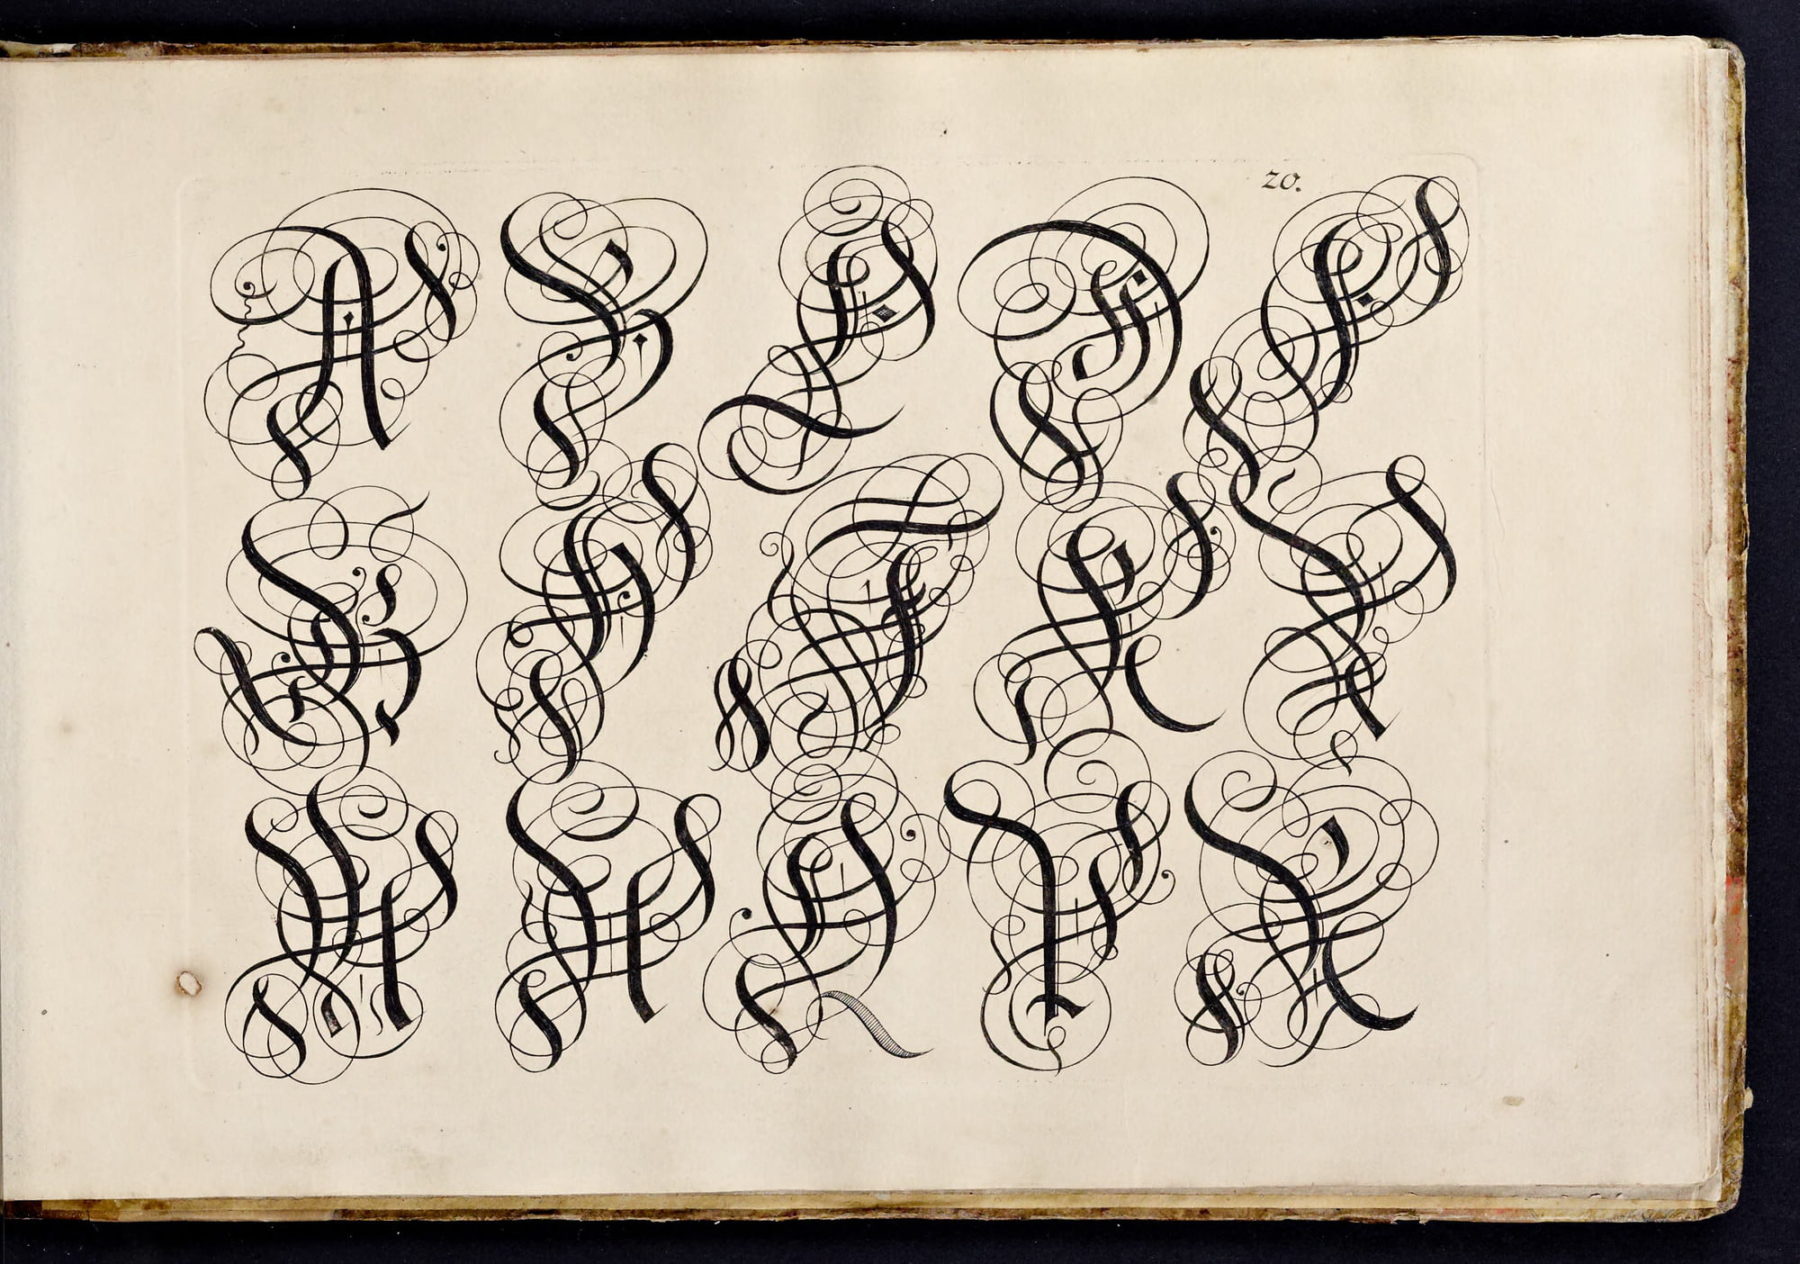 20.
A B C D E
G H I K L
M N O P R